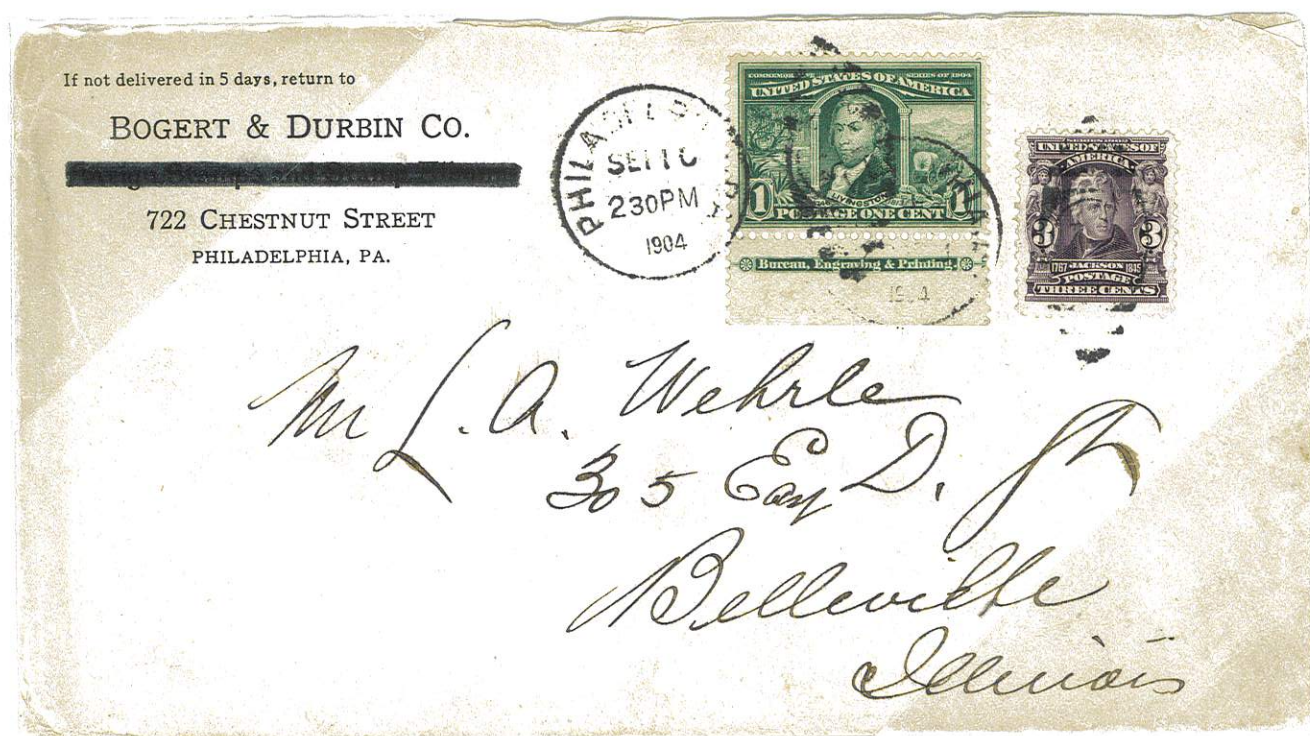 If not delivered in 5 days, return to
BOGERT & DURBIN CO.
722 CHESTNUT STREET
PHILADELPHIA, PA.
PHILADEL
2 30 PM
1904
COMMEMO SERIES OF 1904
UNITED STATES OF AMERICA
LIVINGSTON
1 POSTAGE ONE CENT 1
Bureau, Engraving & Printing.
UNITED STATES OF
AMERICA
3 3
1767 JACKSON 1845
POSTAGE
THREE CENTS
Mr L. A. Wehrle
305 East D. St
Belleville
Illinois